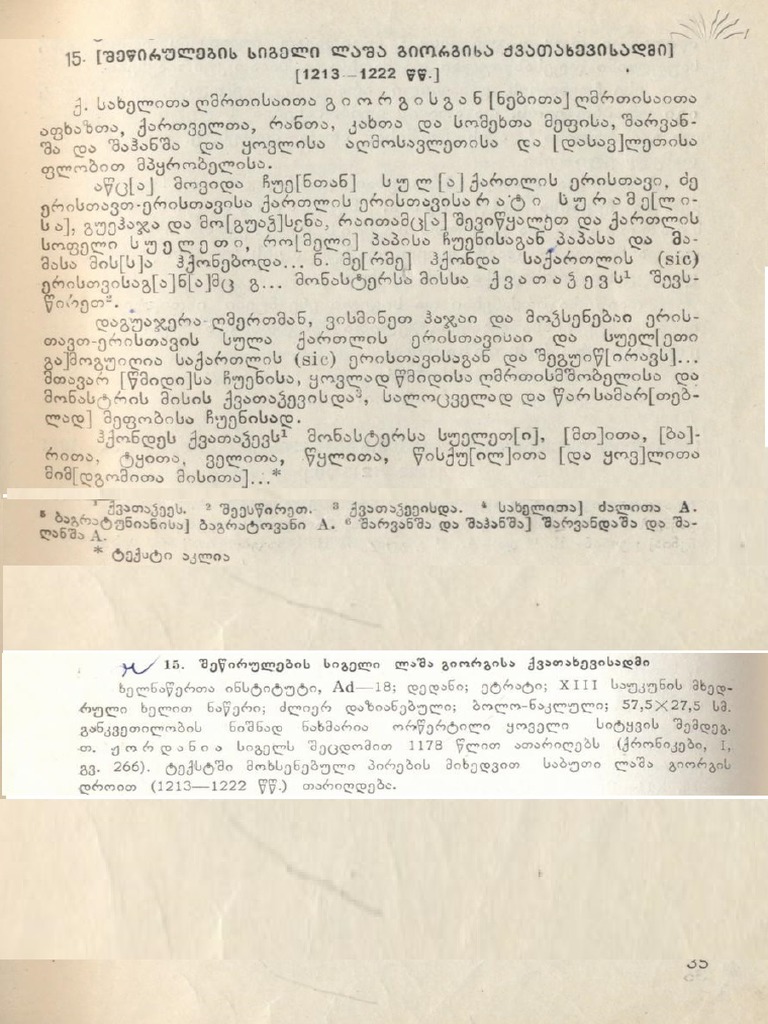 15. [შეწირულების სიგელი ლაშა გიორგისა ქვათახევისადმი]
[1213—1222 წწ.]
ქ. სახელითა ღმრთისაითა გიორგისგან [ნებითა] ღმრთისაითა
აფხაზთა, ქართველთა, რანთა, კახთა და სომეხთა მეფისა, შარვან-
შა და შაჰანშა და ყოვლისა აღმოსავლეთისა და [დასავ]ლეთისა
ფლობით მპყრობელისა.
აწც[ა] მოვიდა ჩუე[ნთან] სულ[ა] ქართლის ერისთავი, ძე
ერისთავთ-ერისთავისა ქართლის ერისთავისა რატი სურამე[ლი-
სა], გუეჰაჯა და მო[გუაჴ]სენა, რაითამც[ა] შევიწყალეთ და ქართლის
სოფელი სუელეთი, რო[მელი] პაპისა ჩუენისაგან პაპასა და მა-
მასა მის[ს]ა ჰქონებოდა... ნ. მე[რმე] ჰქონდა საქართლის (sic)
ერისთვისაგ[ა]ნ[ა]მც გ... მონასტერსა მისსა ქვათაჴევს¹ შევს-
წირეთ².
დაგუაჯერა ღმერთმან, ვისმინეთ ჰაჯაი და მოჴსენებაი ერის-
თავთ-ერისთავის სულა ქართლის ერისთავისაი და სუელ[ეთი
გა]მოგუიღია საქართლის (sic) ერისთავისაგან და შეგუიწ[ირავს]...
მთავარ [წმიდი]სა ჩუენისა, ყოვლად წმიდისა ღმრთისმშობელისა და
მონასტრის მისის ქვათაჴევისდა³, სალოცველად და წარსამარ[თებ-
ლად] მეფობისა ჩუენისად.
ჰქონდეს ქვათაჴევს¹ მონასტერსა სუელეთ[ი], [მთ]ითა, [ბა]-
რითა, ტყითა, ველითა, წყლითა, წისქუ[ილ]ითა [და ყოვ]ლითა
მიმ[დგომითა მისითა]...*
¹ ქვათაჴევს. ² შეესწირეთ. ³ ქვათაჴევისდა. ⁴ სახელითა] ძალითა A.
⁵ ბაგრატუნიანისა] ბაგრატოვანი A. ⁶ შარვანშა და შაჰანშა] შარვანდაშა და შა-
ღანშა A.
* ტექსტი აკლია
15. შეწირულების სიგელი ლაშა გიორგისა ქვათახევისადმი
ხელნაწერთა ინსტიტუტი, Ad—18; დედანი; ეტრატი; XIII საუკუნის მხედ-
რული ხელით ნაწერი; ძლიერ დაზიანებული; ბოლო-ნაკლული; 57,5×27,5 სმ.
განკვეთილობის ნიშნად ნახმარია ორწერტილი ყოველი სიტყვის შემდეგ.
თ. ჟორდანია სიგელს შეცდომით 1178 წლით ათარიღებს (ქრონიკები, I,
გვ. 266). ტექსტში მოხსენებული პირების მიხედვით საბუთი ლაშა გიორგის
დროით (1213—1222 წწ.) თარიღდება.
35